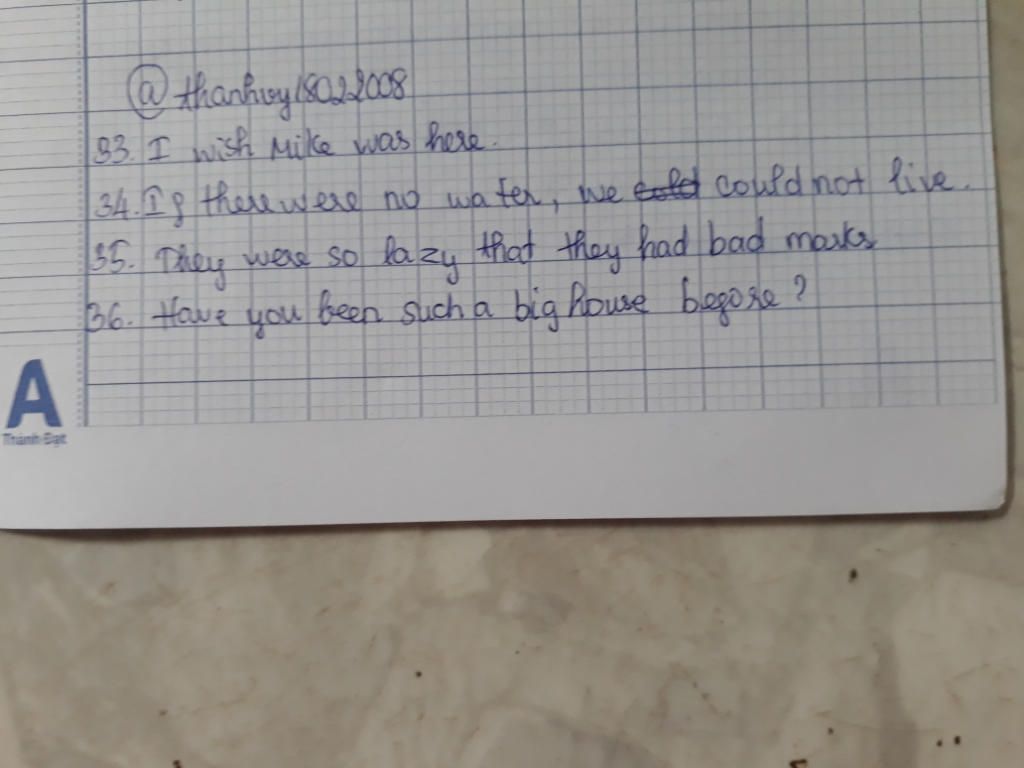 @thanhvy18022008
33. I wish Mike was here.
34. If there were no water, we could not live.
35. They were so lazy that they had bad marks
36. Have you been such a big house before?
A
Thành Đạt